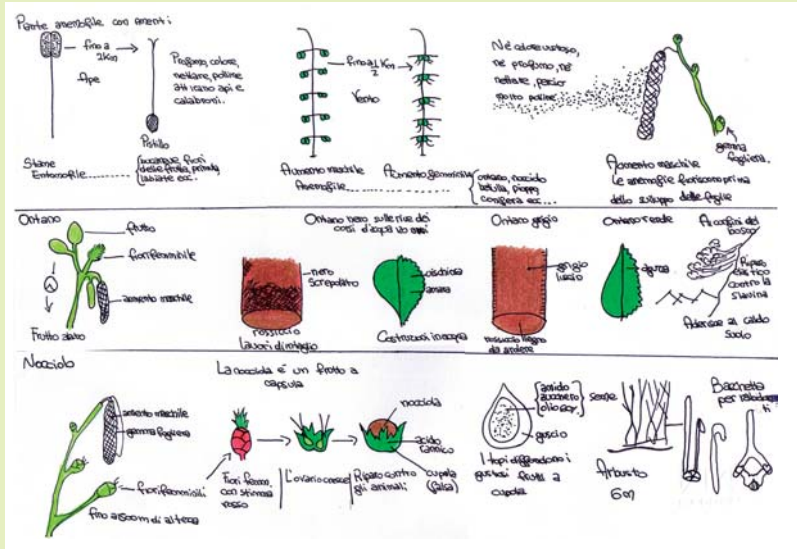 Piante anemofile con amenti
fino a
2Km
Ape
Profumo, colore,
nettare, polline
attirano api e
calabroni.
Pistillo
Stame
Entomofile
fiori
della frutta, primula
labiate ecc..
fino a 1/2 Km
Vento
Aumento maschile
Anemofile
Aumento femminile
ontano, nocciolo
betulla, pioppo
conifera ecc...
Nè colore vistoso,
nè profumo, nè
nettare, perciò
molto polline
gemma
fogliera.
Aomento maschile
Le anemofile fioriscono prima
dello sviluppo delle foglie
Ontano
frutto
fiori femminile
amento maschile
Frutto alato
Ontano nero sulle rive dei
corsi d'acqua
nero
screpolato
rossiccio
lavori di intaglio
vischiosa
amara
Costruzioni in acqua
Ontano grigio
grigio
liscio
rossiccio legno
da ardere
Ontano verde
Ai confini del
bosco
Riparo
elastico
contro la
slavina
Aderisce al caldo
suolo
Nocciolo
amento maschile
gemma fogliera
fiori femminili
fino a 1500m di altezza
La nocciola e' un frutto a
capsula
Fiori femm.
con stimma
rosso
L'ovario cresce
nocciola
acido
tannico
cupola
(falsa)
Riparo contro
gli animali
amido
zucchero
olio
seme
guscio
I topi diffondono i
gustosi frutti a
cupola
Arbusto
6m
Bacchetta
per rabdomanti